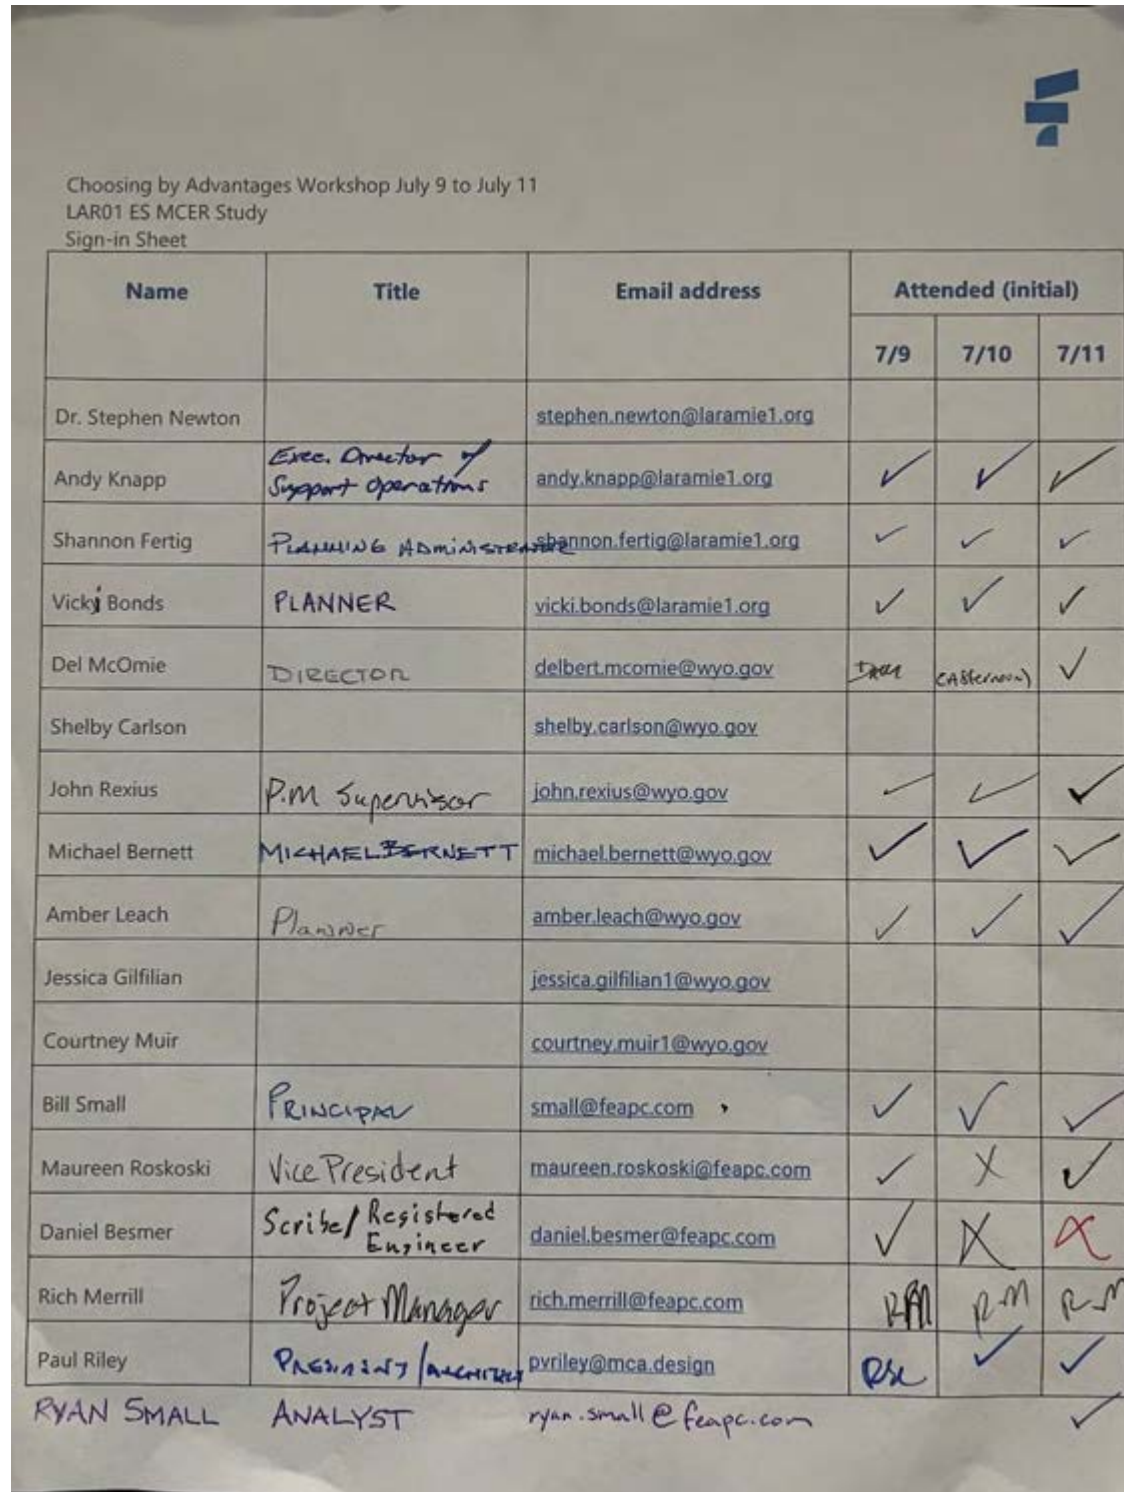 Choosing by Advantages Workshop July 9 to July 11
LAR01 ES MCER Study
Sign-in Sheet
Name Title Email address Attended (initial)
7/9 7/10 7/11
Dr. Stephen Newton stephen.newton@laramie1.org
Andy Knapp Exec. Director of Support Operations andy.knapp@laramie1.org ✓ ✓ ✓
Shannon Fertig PLANNING ADMINISTRATOR shannon.fertig@laramie1.org ✓ ✓ ✓
Vicki Bonds PLANNER vicki.bonds@laramie1.org ✓ ✓ ✓
Del McOmie DIRECTOR delbert.mcomie@wyo.gov (Afternoon) ✓
Shelby Carlson shelby.carlson@wyo.gov
John Rexius P.M Supervisor john.rexius@wyo.gov ✓ ✓ ✓
Michael Bernett MICHAEL BERNETT michael.bernett@wyo.gov ✓ ✓ ✓
Amber Leach Planner amber.leach@wyo.gov ✓ ✓ ✓
Jessica Gilfilian jessica.gilfilian1@wyo.gov
Courtney Muir courtney.muir1@wyo.gov
Bill Small PRINCIPAL small@feapc.com ✓ ✓ ✓
Maureen Roskoski Vice President maureen.roskoski@feapc.com ✓ X ✓
Daniel Besmer Scribe/Registered Engineer daniel.besmer@feapc.com ✓ X X
Rich Merrill Project Manager rich.merrill@feapc.com RM R-M R-M
Paul Riley PRESIDENT/ARCHITECT pvriley@mca.design ✓ ✓
RYAN SMALL ANALYST ryan.small@feapc.com ✓